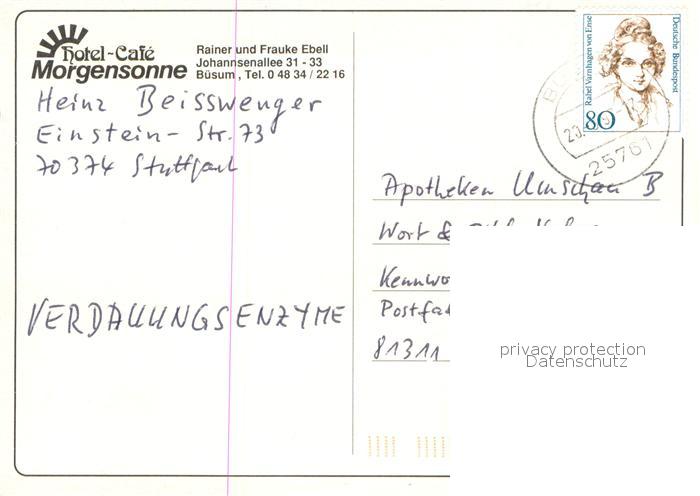 Hotel-Café
Morgensonne
Rainer und Frauke Ebell
Johannsenallee 31 - 33
Büsum, Tel. 0 48 34 / 22 16
Heinz Beisswenger
Einstein-Str. 73
70374 Stuttgart
VERDAUUNGSENZYME
Rahel Varnhagen von Ense
Deutsche Bundespost
80
25761
Apotheken Umschau B
Wort &
Kennwo
Postfa
81311
privacy protection
Datenschutz